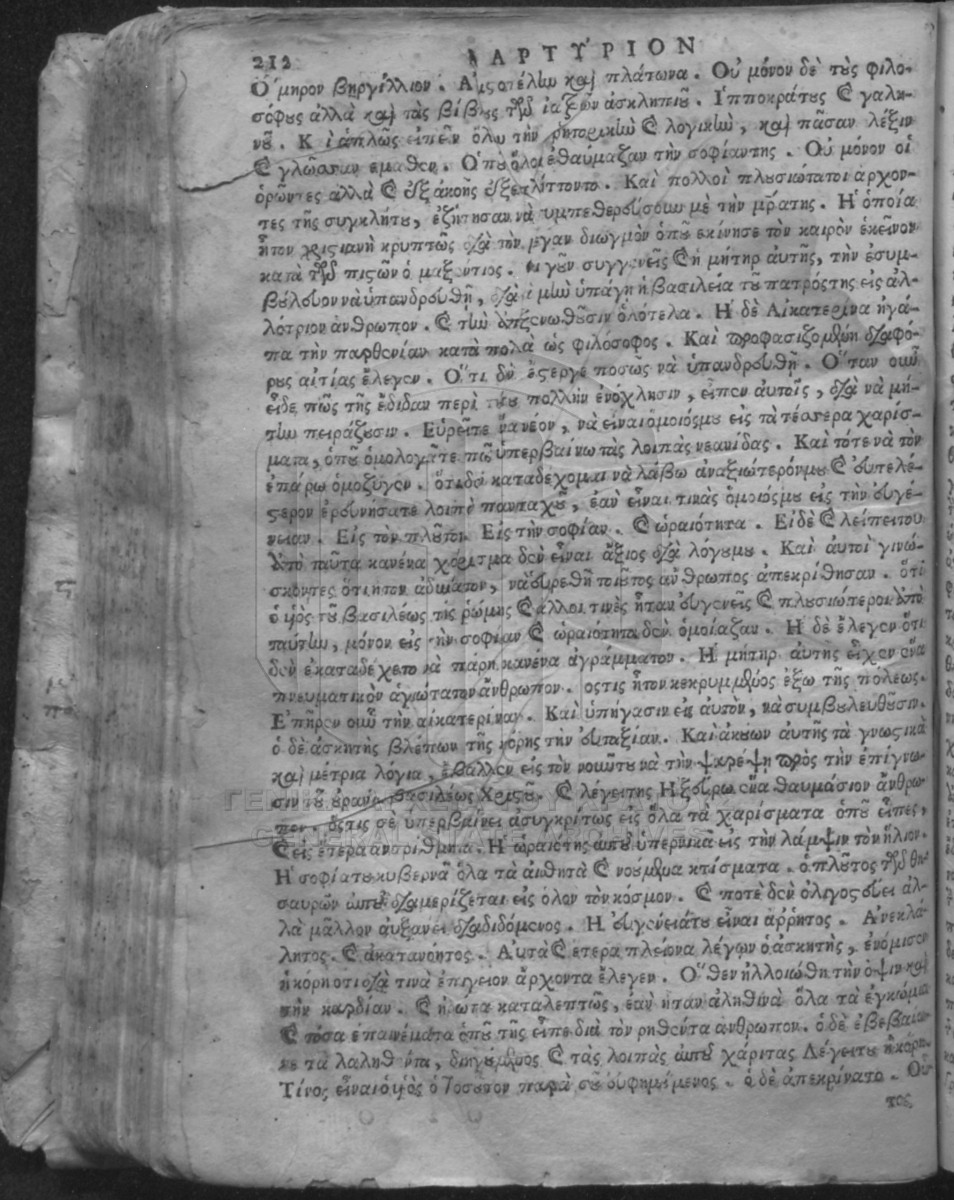 212 ΜΑΡΤΥΡΙΟΝ
Ὅμηρον βηργίλλιον. Ἀριστοτέλην καὶ πλάτωνα. Οὐ μόνον δὲ τοὺς φιλο-
σόφους ἀλλὰ καὶ τὰς βίβλους τῶν ἰατρῶν ἀσκληπιοῦ. Ἱπποκράτους καὶ γαλη-
νοῦ. Καὶ ἁπλῶς εἰπεῖν ὅλην τὴν ῥητορικὴν καὶ λογικὴν, καὶ πᾶσαν λέξιν
καὶ γλῶσσαν εμαθεν. Ὁποῦ ὅλοι ἐθαύμαζαν τὴν σοφίαν της. Οὐ μόνον οἱ
ὁρῶντες αλλὰ καὶ ἐξ ἀκοῆς ἐξεπλίττοντο. Καὶ πολλοὶ πλυσιώτατοι ἀρχον-
τες τῆς συγκλήτου, ἐζήτησαν νὰ υμπεθερεύσουν μὲ τὴν μρα της. Ἡ ὁποία
ἦτον χριστιανὴ κρυπτῶς διὰ τὸν μέγαν διωγμὸν ὁποῦ εκίνησε τὸν καιρὸν ἐκεῖνον
κατὰ τῶν πιστῶν ὁ μαξέντιος. οι γοῦν συγγενεῖς καὶ ἡ μήτηρ ἀυτῆς, τὴν ἐσυμ-
βούλευον νὰ ὑπανδρευθῆ, διὰ νὰ μὴν ὑπάγη ἡ βασιλεία τοῦ πατρόςτης εἰς ἀλ-
λότριον ἀνθρωπον. καὶ τὴν ἀπεξενωθοῦσιν ὁλότελα. Ἡ δὲ Αἰκατερίνα ἠγά-
πα τὴν παρθενίαν κατὰ πολὰ ὡς φιλόσοφος. Καὶ προφασιζομένη διαφό-
ρους αἰτίας ἔλεγεν. Ὅτι δὲν ἐστεργε ποσῶς νὰ ὑπανδρευθῆ. Ὅταν οὖν
εἶδε πῶς τῆς ἔδιδαν περὶ τούτου πολλὴν ἐνόχλησιν, εἶπεν αὐτοῖς, διὰ νὰ μὴ
τὴν πειράζουσιν. Εὑρεῖτε ἕνα νέον, νὰ εἶναι ὁμοιόςμου εἰς τὰ τέσσερα χαρίσ-
ματα, ὁποῦ ὁμολογᾶτε πῶς ὑπερβαίνω τὰς λοιπὰς νεανίδας. Καὶ τότε νὰ τὸν
ἐπάρω ὁμόζυγον. ὅτι δὲν καταδέχομαι νὰ λάβω ἀναξιώτερόνμου καὶ ἐυτελέ-
στερον ἐρευνήσατε λοιπὸ πανταχοῦ, ἐὰν εἶναι τινὰς ὁμοιόςμου εἰς τὴν ἐυγέ-
νειαν. Εἰς τὸν πλοῦτον. Εἰς τὴν σοφίαν. καὶ ὡραιότητα. Εἰδὲ καὶ λείπει του
ἀπὸ ταῦτα κανένα χάρισμα δὲν εἶναι ἄξιος διὰ λόγουμου. Καὶ ἀυτοὶ γινώ-
σκοντες ὅτι ἦτον ἀδύνατον, νὰ εὑρεθῆ τοιοῦτος ἄνθρωπος ἀπεκρίθησαν. ὅτι
ὁ υἱὸς τοῦ βασιλέως τῆς ῥώμης καὶ ἀλλοι τινὲς ἦταν ἐυγενεῖς καὶ πλουσιώτεροι ἀπὸ
ταύτην, μόνον εἰς τὴν σοφίαν καὶ ὡραιότητα δὲν ὁμοίαζαν. Ἡ δὲ ἔλεγεν ὅτι
δὲν ἐκαταδέχετο νὰ πάρη κανένα ἀγράμματον. Ἡ μήτηρ αὐτῆς εἶχεν ἕνα
πνευματικὸν ἁγιώτατον ἄνθρωπον. οστις ἦτον κεκρυμμένος ἐξω τῆς πόλεως.
Ἐπῆρεν οὖν τὴν αἰκατερίναν. Καὶ ὑπήγασιν εἰς αὐτὸν, νὰ συμβουλευθοῦσιν.
ὁ δὲ ἀσκητὴς βλέπων τῆς κόρης τὴν ἐυταξίαν. Καὶ ἀκούων ἀυτῆς τὰ γνωστικὰ
καὶ μέτρια λόγια, ἐβαλλεν εἰς τὸν νουντου νὰ τὴν ψαρέψη πρὸς τὴν ἐπίγνω-
σιν τοῦ οὐρανίου βασιλέως Χριστοῦ. καὶ λέγει της Ἠξεύρω ἕνα θαυμάσιον ἄνθρω-
πον, ὅστις σε ὑπερβαίνει ἀσυγκρίτως εἰς ὅλα τὰ χαρίσματα ὁποῦ εἶπες,
καὶ εἰς ἕτερα αναρίθμητα. Ἡ ὡραιότης αὐτοῦ ὑπερνικᾶ εἰς τὴν λάμψιν τὸν ἥλιον.
Ἡ σοφίατου κυβερνᾶ ὅλα τὰ αἰσθητὰ καὶ νοούμενα κτίσματα. ὁ πλοῦτος τῶν θη-
σαυρῶν αὐτοῦ διαμερίζεται εἰς ὅλον τὸν κόσμον. καὶ ποτὲ δὲν ὀλιγοστεύει ἀλ-
λὰ μᾶλλον ἀυξάνει διαδιδόμενος. Ἡ ἐυγένειάτου εἶναι ἀῤῥητος. Ἀνεκλά-
λητος. καὶ ἀκατανόητος. Ἀυτὰ καὶ ἕτερα πλείονα λέγων ὁ ἀσκητὴς, ἐνόμισεν
ἡ κόρη οτι διὰ τινὰ ἐπίγειον ἄρχοντα ἔλεγεν. Ὅθεν ἠλλοιώθη τὴν ὀψιν καὶ
τὴν καρδίαν. καὶ ἠρώτα καταλεπτῶς, ἐὰν ἦταν ἀληθινὰ ὅλα τὰ ἐγκώμια
καὶ τόσα ἐπαινέματα ὁποῦ τῆς εἶπε διὰ τὸν ῥηθέντα ἀνθρωπον. ὁ δὲ ἐβεβαίω-
νε τὰ λαληθέντα, διηγούμενος καὶ τὰς λοιπὰς αὐτοῦ χάριτας Λέγει του ἡ κόρη.
Τίνος εἶναι ὁ υἱὸς ὁ τοσοῦτον παρὰ σοῦ ἐυφημούμενος. ὁ δὲ ἀπεκρίνατο. Οὗ-
τος
ΓΕΝΙΚΑ ΑΡΧΕΙΑ ΤΟΥ ΚΡΑΤΟΥΣ
GENERAL STATE ARCHIVES